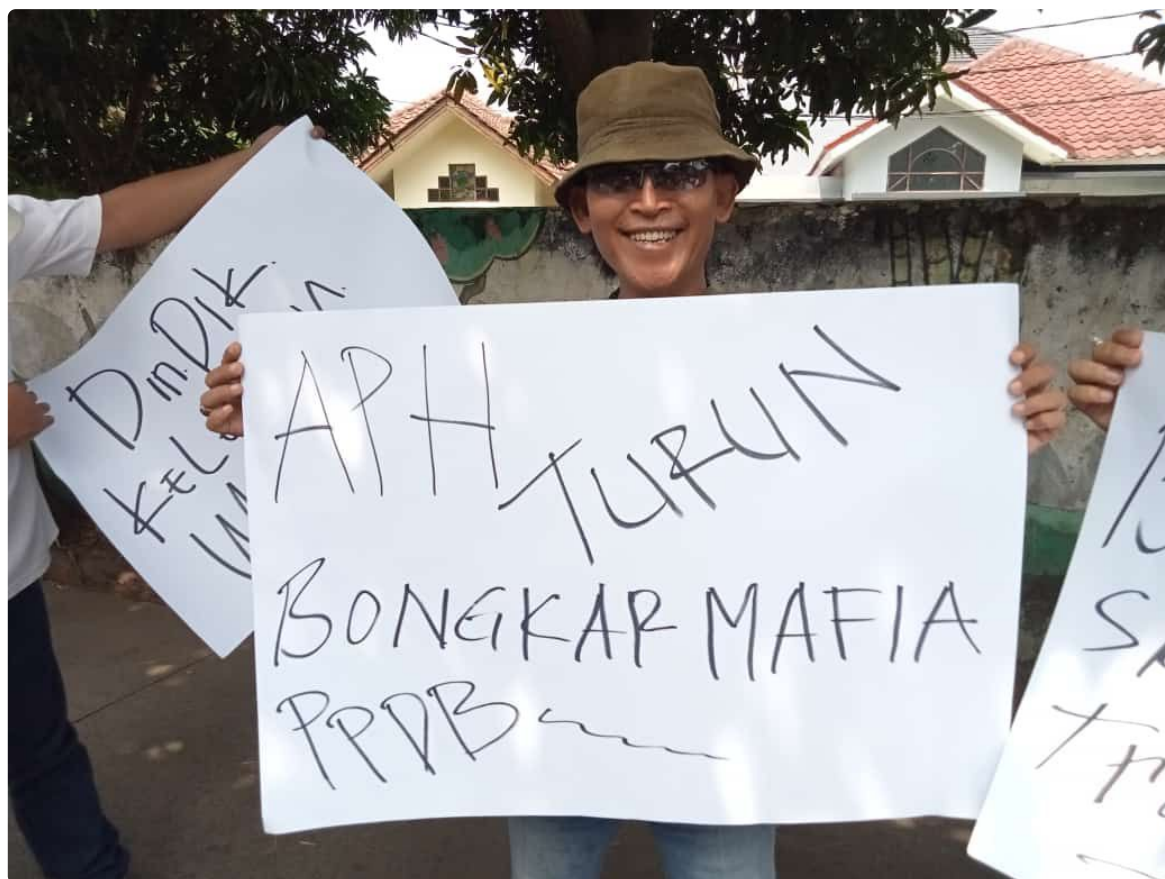 Din. Dik
KEL
APH TURUN
BONGKAR MAFIA
PPDB